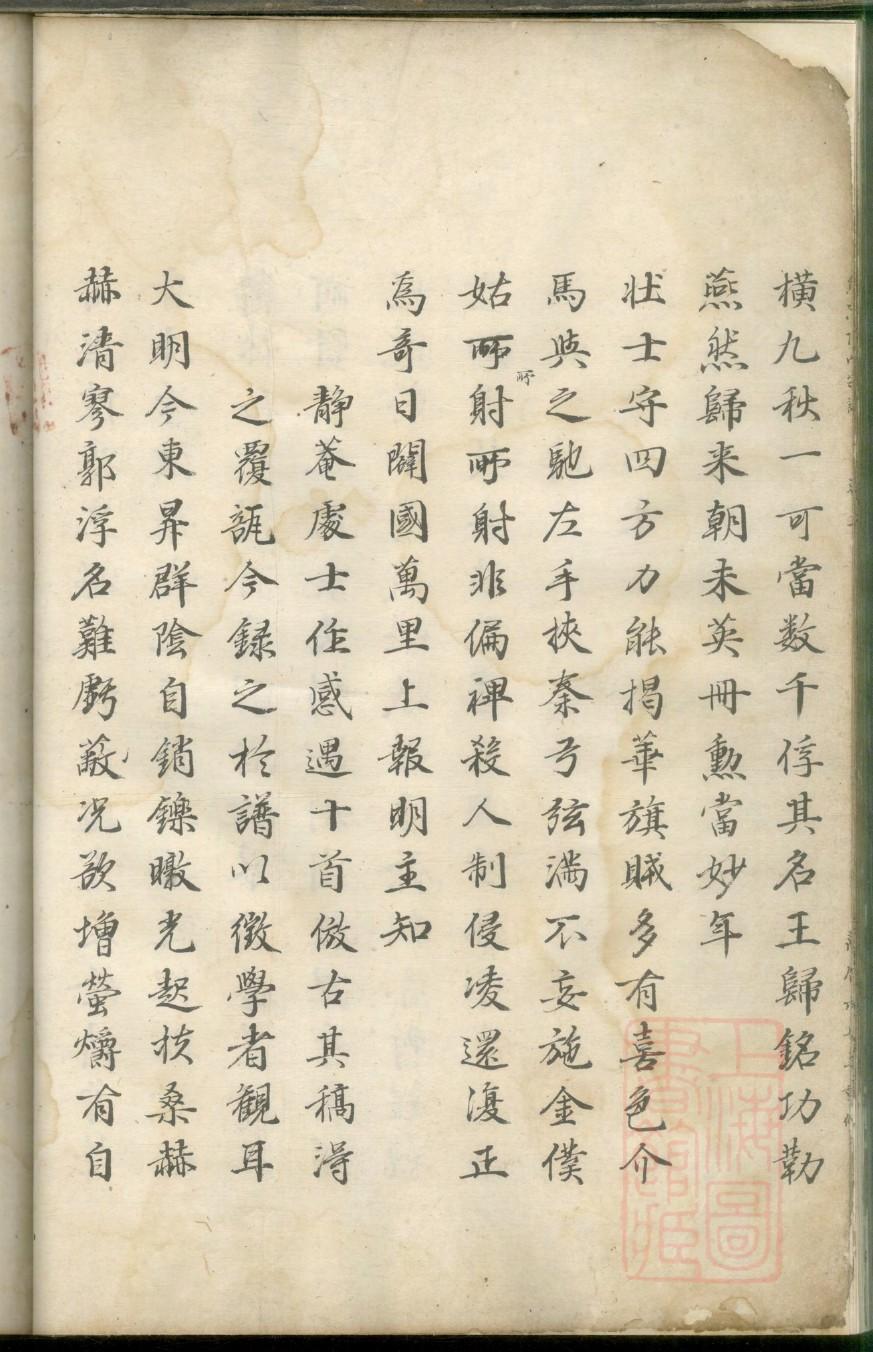 橫九秋一可當数千俘其名王歸銘功勒
燕然歸来朝未英冊勲當妙年
壮士守四方力能揭華旗賊多有喜色介
馬與之馳左手挾秦弓弦满不妄施金僕
姑所射所射非偏裨殺人制侵凌還復正
所
為奇日闢國萬里上報明主知
静菴處士作感遇十首倣古其稿淂
之覆瓿今録之於譜以徴學者観耳
大明今東昇群陰自銷鑠暾光起扶桑赫
赫清寥郭浮名難虧蔽况欲増螢爝有自
上海圖
書館藏